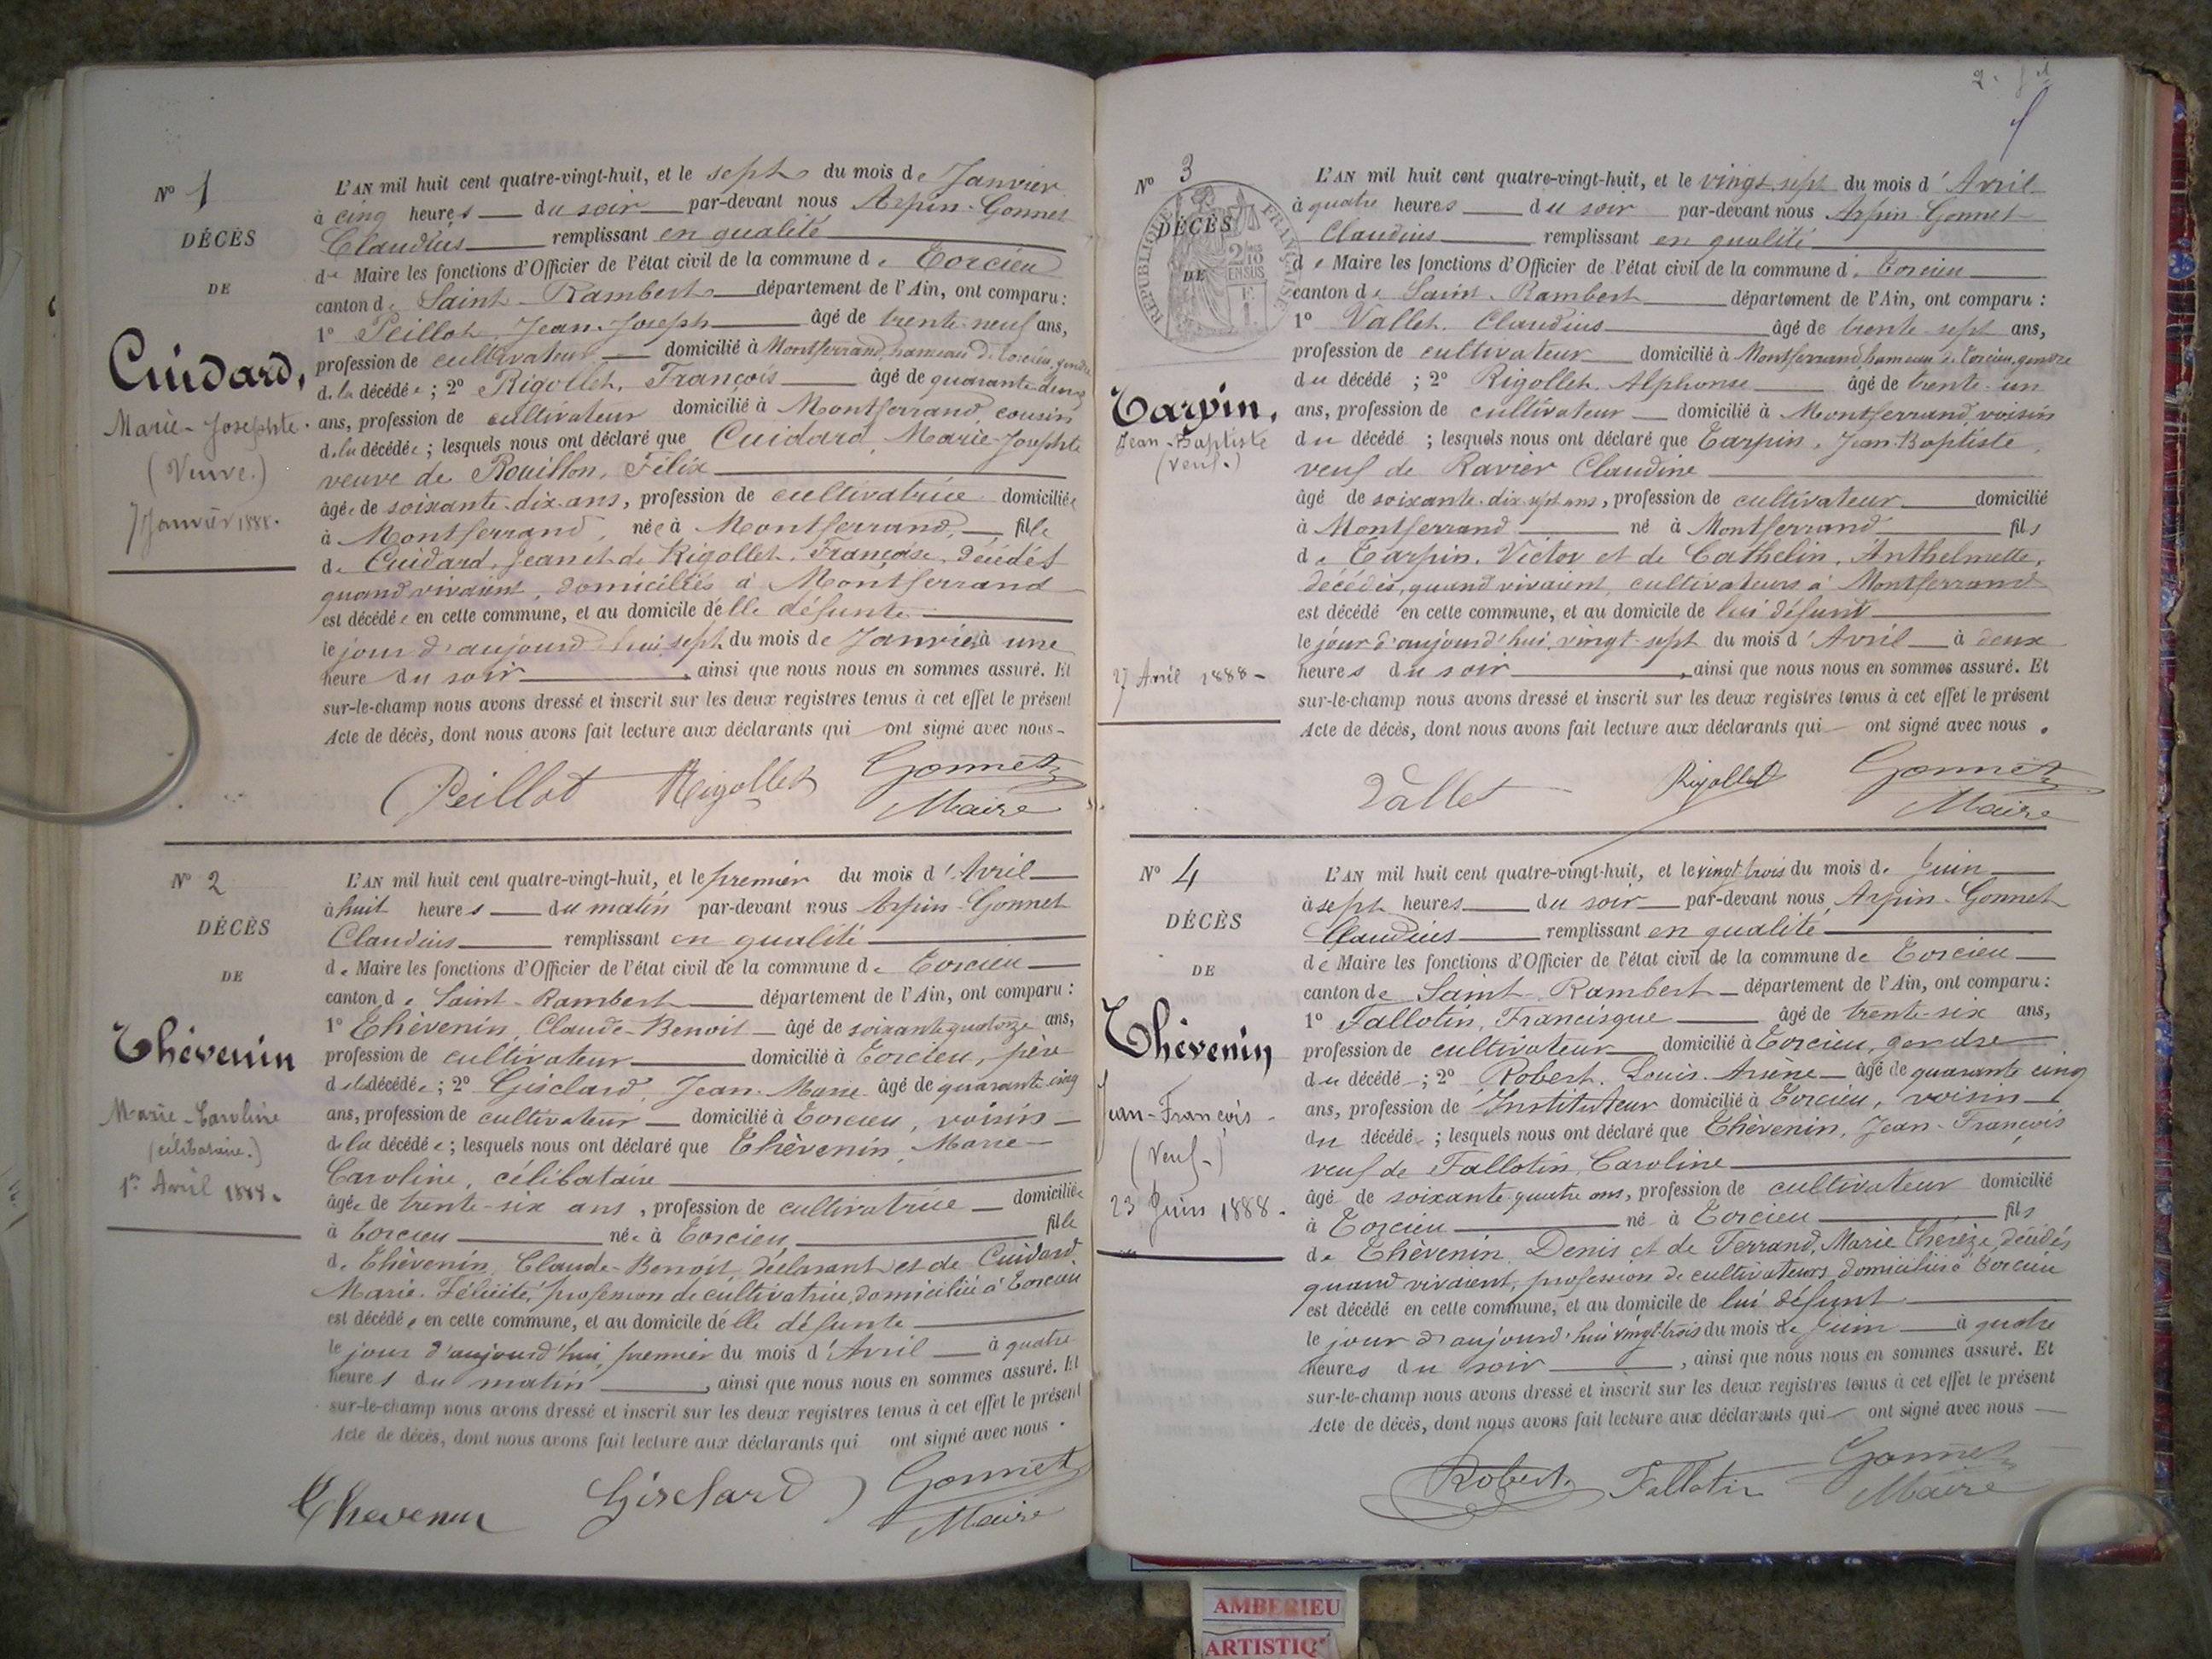 N° 1
DÉCÈS
DE
Cuidard,
Marie-Josephte.
(Veuve.)
7 Janvier 1888.
L'AN mil huit cent quatre-vingt-huit, et le sept du mois de Janvier
à cinq heures du soir par-devant nous Arpin-Gonnet
Claudius remplissant en qualité
de Maire les fonctions d'Officier de l'état civil de la commune de Torcieu
canton de Saint-Rambert département de l'Ain, ont comparu :
1° Peillot, Jean-Joseph âgé de trente-neuf ans,
profession de cultivateur domicilié à Montferrand, hameau de Torcieu, gendre
de la décédée ; 2° Rigollet, François âgé de quarante-deux
ans, profession de cultivateur domicilié à Montferrand cousin
de la décédée ; lesquels nous ont déclaré que Cuidard, Marie-Josephte
veuve de Rouillon, Félix
âgée de soixante-dix ans, profession de cultivatrice domiciliée
à Montferrand, née à Montferrand, fille
de Cuidard, Jean et de Rigollet, Françoise, décédés
quand vivaient, domiciliés à Montferrand
est décédée en cette commune, et au domicile d'elle défunte
le jour d'aujourd'hui sept du mois de Janvier à une
heure du soir, ainsi que nous nous en sommes assuré. Et
sur-le-champ nous avons dressé et inscrit sur les deux registres tenus à cet effet le présent
Acte de décès, dont nous avons fait lecture aux déclarants qui ont signé avec nous
Peillot Rigollet Gonnet
Maire
N° 2
DÉCÈS
DE
Thévenin
Marie-Caroline
(célibataire.)
1er Avril 1888.
L'AN mil huit cent quatre-vingt-huit, et le premier du mois d'Avril
à huit heures du matin par-devant nous Arpin-Gonnet
Claudius remplissant en qualité
de Maire les fonctions d'Officier de l'état civil de la commune de Torcieu
canton de Saint-Rambert département de l'Ain, ont comparu :
1° Thévenin, Claude-Benoit âgé de soixante quatorze ans,
profession de cultivateur domicilié à Torcieu, père
de la décédée ; 2° Gisclard, Jean-Marie âgé de quarante cinq
ans, profession de cultivateur domicilié à Torcieu, voisin
de la décédée ; lesquels nous ont déclaré que Thévenin, Marie
Caroline, célibataire
âgée de trente-six ans, profession de cultivatrice domiciliée
à Torcieu née à Torcieu fille
de Thévenin, Claude-Benoit, déclarant et de Cuidard
Marie-Félicité, profession de cultivatrice, domiciliée à Torcieu
est décédée en cette commune, et au domicile d'elle défunte
le jour d'aujourd'hui, premier du mois d'Avril à quatre
heures du matin, ainsi que nous nous en sommes assuré. Et
sur-le-champ nous avons dressé et inscrit sur les deux registres tenus à cet effet le présent
Acte de décès, dont nous avons fait lecture aux déclarants qui ont signé avec nous.
Thevenin Gisclard Gonnet
Maire
N° 3
DÉCÈS
DE
RÉPUBLIQUE FRANÇAISE
2/10
EN SUS
Tarpin,
Jean-Baptiste
(Veuf.)
27 Avril 1888
L'AN mil huit cent quatre-vingt-huit, et le vingt-sept du mois d'Avril
à quatre heures du soir par-devant nous Arpin Gonnet
Claudius remplissant en qualité
de Maire les fonctions d'Officier de l'état civil de la commune de Torcieu
canton de Saint-Rambert département de l'Ain, ont comparu :
1° Vallet, Claudius âgé de trente-sept ans,
profession de cultivateur domicilié à Montferrand, hameau de Torcieu, gendre
du décédé ; 2° Rigollet, Alphonse âgé de trente-un
ans, profession de cultivateur domicilié à Montferrand, voisin
du décédé ; lesquels nous ont déclaré que Tarpin, Jean-Baptiste,
veuf de Ravier Claudine
âgé de soixante-dix-sept ans, profession de cultivateur domicilié
à Montferrand né à Montferrand fils
de Tarpin, Victor et de Cathelin, Anthelmette,
décédés, quand vivaient, cultivateurs à Montferrand
est décédé en cette commune, et au domicile de lui défunt
le jour d'aujourd'hui, vingt-sept du mois d'Avril à deux
heures du soir, ainsi que nous nous en sommes assuré. Et
sur-le-champ nous avons dressé et inscrit sur les deux registres tenus à cet effet le présent
Acte de décès, dont nous avons fait lecture aux déclarants qui ont signé avec nous.
Vallet Rigollet Gonnet
Maire
N° 4
DÉCÈS
DE
Thévenin
Jean-François
(Veuf)
23 Juin 1888.
L'AN mil huit cent quatre-vingt-huit, et le vingt-trois du mois de Juin
à sept heures du soir par-devant nous Arpin-Gonnet
Claudius remplissant en qualité
de Maire les fonctions d'Officier de l'état civil de la commune de Torcieu
canton de Saint-Rambert département de l'Ain, ont comparu :
1° Fallotin, Francisque âgé de trente-six ans,
profession de cultivateur domicilié à Torcieu, gendre
du décédé ; 2° Robert, Louis-Arsène âgé de quarante cinq
ans, profession de Instituteur domicilié à Torcieu, voisin
du décédé ; lesquels nous ont déclaré que Thévenin, Jean-François
veuf de Fallotin, Caroline
âgé de soixante-quatre ans, profession de cultivateur domicilié
à Torcieu né à Torcieu fils
de Thévenin, Denis et de Ferrand, Marie Thérèze, décédés
quand vivaient, profession de cultivateurs domiciliés à Torcieu
est décédé en cette commune, et au domicile de lui défunt
le jour d'aujourd'hui vingt-trois du mois de Juin à quatre
heures du soir, ainsi que nous nous en sommes assuré. Et
sur-le-champ nous avons dressé et inscrit sur les deux registres tenus à cet effet le présent
Acte de décès, dont nous avons fait lecture aux déclarants qui ont signé avec nous
Robert Fallotin Gonnet
Maire
AMBERIEU
ARTISTIQ